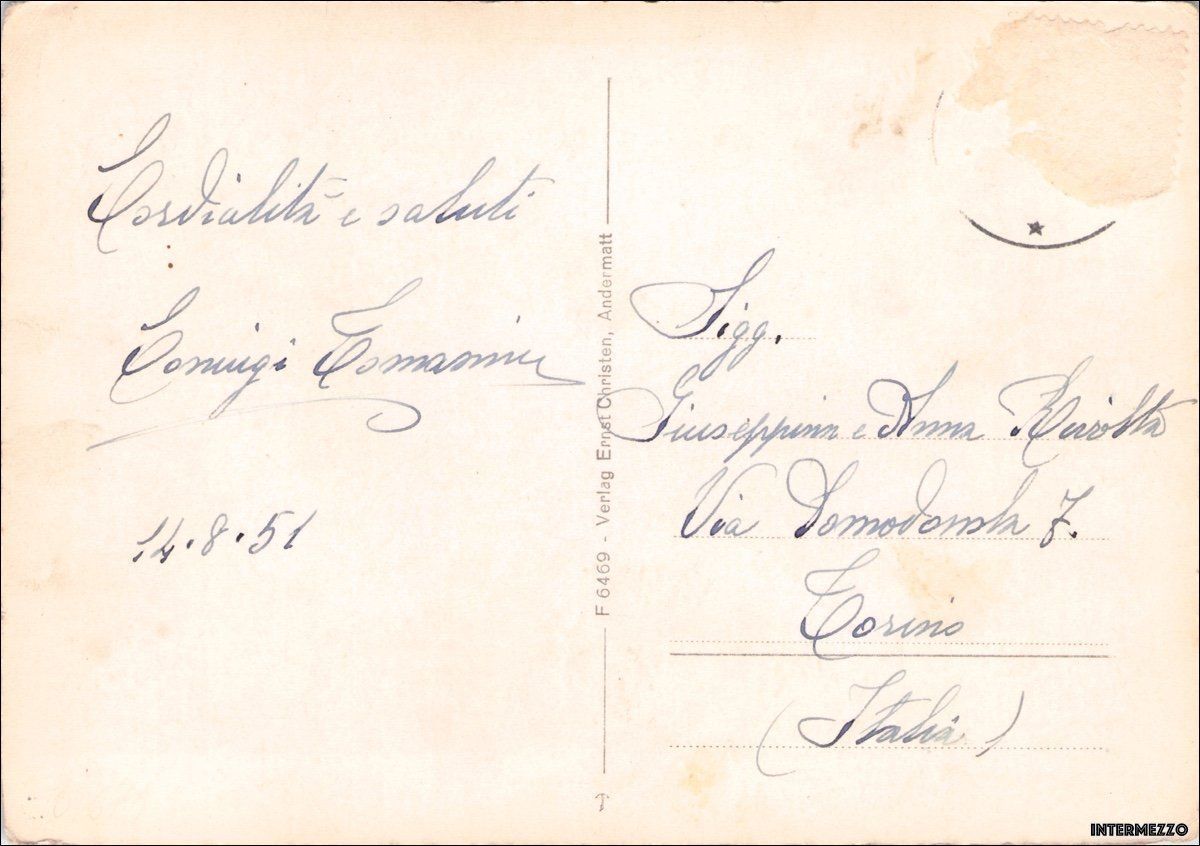 Cordialità e saluti
Coniugi Tomasini
14.8.51
F 6469 - Verlag Ernst Christen, Andermatt
Sigg.
Giuseppina e Anna
Via Domodossola 7.
Torino
(Italia)
INTERMEZZO